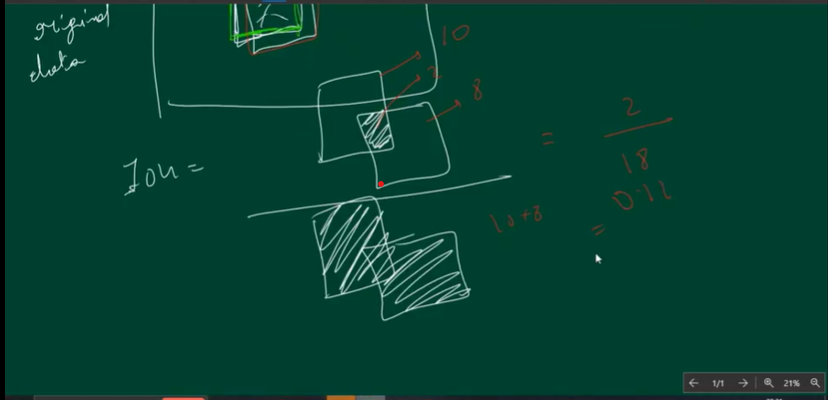 original
data
10
2
8
IOU =
= 2
18
10+8
= 0.11
1/1
21%